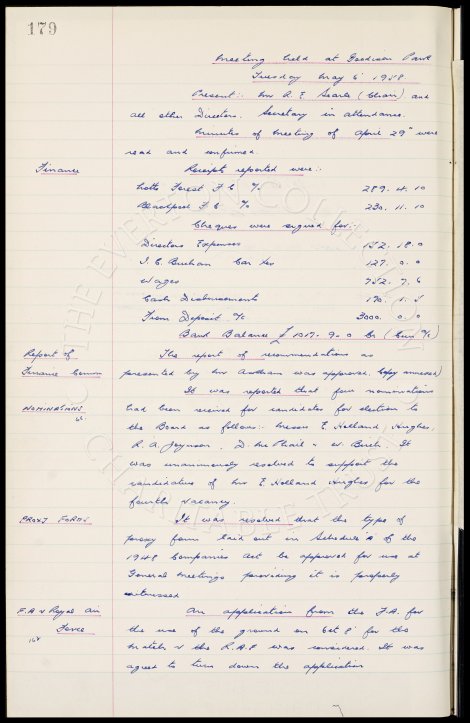 179
Meeting held at Goodison Park
Tuesday May 6" 1958
Present:- Mr R. E. Searle (Chair) and
all other Directors. Secretary in attendance.
Minutes of Meeting of April 29" were
read and confirmed.
Finance
Receipts reported were:-
Notts Forest F C %c 289. 4. 10
Blackpool F C %c 230. 11. 10
Cheques were signed for:-
Directors Expenses 152. 18. 0
I. C. Buchan Car 127. 0. 0
Wages 752. 7. 6
Cash Disbursements 170. 1. 5
From Deposit a/c 3000. 0. 0
Bank Balance £1017. 9. 0 Cr (Curr a/c)
Report of
Finance Comm
The report of recommendations as
presented by Mr was approved. (copy annexed)
NOMINATIONS
It was reported that four nominations
had been received for candidates for election to
the Board as follows:- Messrs E. Holland Hughes,
R. A. Joynson, D. McPhail & W. Birch. It
was unanimously resolved to support the
candidature of Mr E. Holland Hughes for the
fourth vacancy.
PROXY FORMS
It was resolved that the type of
proxy form laid out in Schedule A of the
1948 Companies Act be approved for use at
General Meetings providing it is properly
witnessed
F.A v Royal Air
Force
An application from the F.A. for
the use of the ground on Oct 8" for the
match v the R.A.F was considered. It was
agreed to turn down the application
THE EVERTON COLLECTION
CHARITABLE TRUST